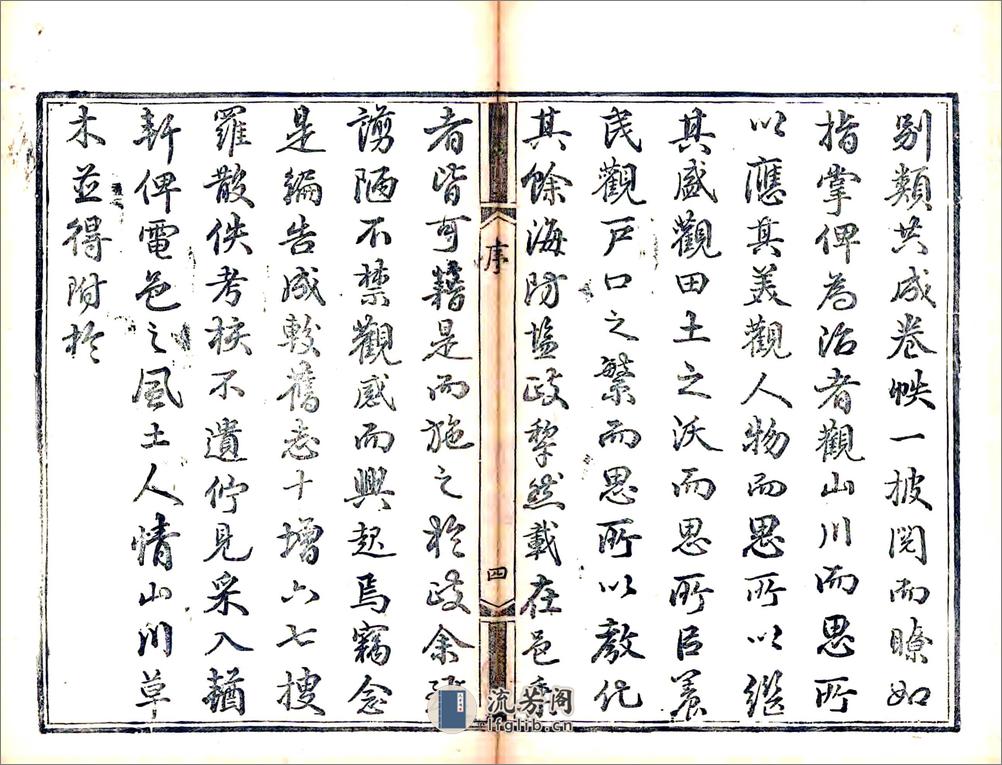 別類共成卷帙一披閱而瞭如
指掌俾為治者觀山川而思所
以應其美觀人物而思所以繼
其盛觀田土之沃而思所㠯養
民觀戶口之繁而思所以教化
其餘海防塩政犂然載在邑乘
序
四
者皆可藉是而施之於政余
謭陋不禁觀感而興起焉竊念
是編告成較舊志十增六七搜
羅散佚考核不遺佇見采入輶
軒俾電邑之風土人情山川草
木並得附於
流芳阁
lfglib.cn